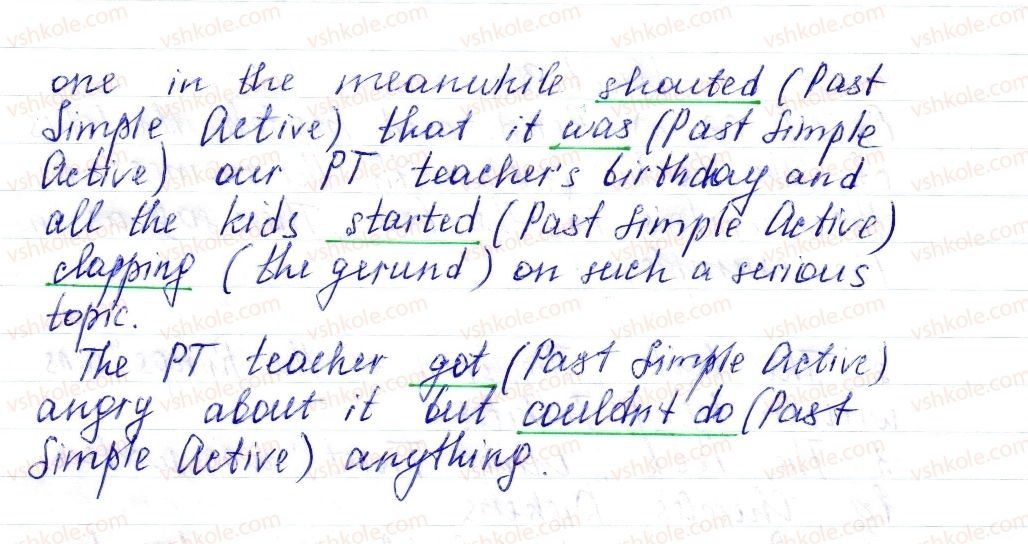 one in the meanwhile shouted (Past
Simple Active) that it was (Past Simple
Active) our PT teacher's birthday and
all the kids started (Past Simple Active)
clapping (the gerund) on such a serious
topic.
The PT teacher got (Past Simple Active)
angry about it but couldn't do (Past
Simple Active) anything.